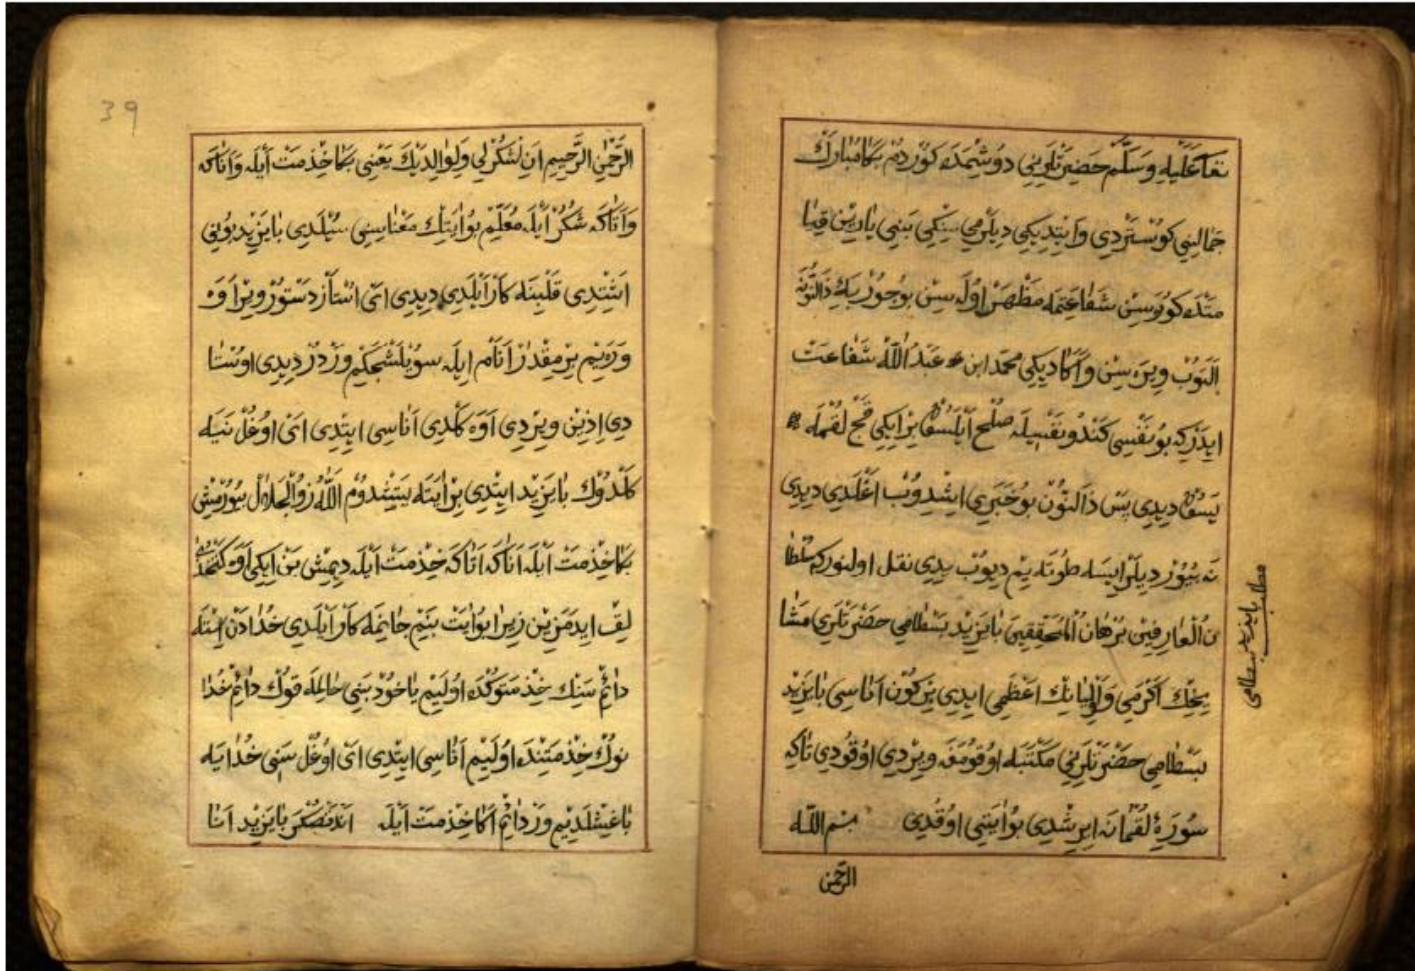 تعا عَلَيْهِ وَسَلَّمْ حَضِرَتْلَرِينِي دُوشُمْدَه كُورْدُمْ بَكَا مُبَارَكْ
جَمَالِينِي كُوسْتَرْدِي وَايْتِدِيكِي دِيلَرْمِي سِنْكِي بَنِي يَارِينْ قِيَا
مَتْدَه كُورَسِنْ شَفَاعَتِمَه مَظْهَرْ اُولَه سِنْ بُوجُوزْ يله ذَالنُّونَه
اَلتوُبْ وِيرَه سِنْ وَاَكَا دِيكِي مُحَمَّد ابن عَبْدُ اللّٰه شَفَاعَتْ
ايدَرْكِه بُونَفْسِي كَنْدُو نَفْسِيلَه صُلْح اَيْلَسُونْ بِرْ ايكِي قَچْ لُقْمَه
يَسُونْ دِيدِي پَسْ ذَالنُّونْ بُو خَبَرِي اِشِدُوبْ اَغْلَدِي دِيدِي
نَه بُيُورْدِيلَرْ ايسَه طُوتَه يِمْ دِيُوبْ يِدِي نقل اولنوركه سُلْطَا
نُ الْعَارِفِينْ بُرْهَانُ الْمُحَقِّقِينَ بَايَزِيد بَسْطَامِي حَضْرَتْلَرِي مَشَا
يِخِكْ اَكْرَمِي وَاَوْلِيَانِكْ اَعْظَمِي ايدِي بِرْ كُونْ اَنَاسِي بَايَزِيد
بَسْطَامِي حَضْرَتْلَرِينِي مَكْتَبَه اُوقُومَغَه وِيرْدِي اُوقُودِي تَاكِه
سُورَهٔ لُقْمَانَه ايرِشْدِي بُو اٰيَتِي اُوقُدِي بِسْمِ اللّٰه
الرَّحْمٰن
مطلب بايزيد بسطامى
39
الرَّحْمٰنِ الرَّحِيمِ اَنِ اشْكُرْلِي وَلِوَالِدَيْكَ يَعْنِي بَكَا خِذْمَتْ اَيْلَه وَاَنَاكَه
وَاَتَاكَه شُكُرْ اَيْلَه مُعَلِّمْ بُو اٰيَتِكْ مَعْنَاسِنِي سُيْلَدِي بَايَزِيد بُونِي
اِشِتْدِي قَلْبِينَه كَارْ اَيْلَدِي دِيدِي اَىْ اُسْتَازْ دَسْتُورْ وِيرْ اَوَه
وَرَه يِمْ بِرْ مِقْدَارْ اَنَامْ ايلَه سُويْلَشَجَكِمْ وَرْدُرْ دِيدِي اُوسْتَا
دِي اِذِنْ وِيرْدِي اَوَه كَلْدِي اَنَاسِي ايتْدِي اَىْ اُوغُلْ نَيَه
كَلْدُوكْ بَايَزِيد ايتْدِي بِرْ اٰيَتَه يَتِشْدُومْ اَللّٰهُ زُو الْجَلَالْ بُيُورْمِشْ
بَكَا خِذْمَتْ اَيْلَه اَنَاكَه اَتَاكَه خِذْمَتْ اَيْلَه دِيمِشْ بَنْ ايكِي اَوَه كَتْخُدَا
لِقْ ايدَمَزِينْ زِيرَا بُو اٰيَتْ بَنِيمْ جَانِمَه كَارْ اَيْلَدِي خُدَادَنْ اِسْتَه
دَائِمْ سَنِكْ خِذْمَتُوكْدَه اُولَيِيمْ يَا خُودْ بَنِي حَالِمَه قُوكْ دَائِمْ خُدَا
نُوكْ خِذْمَتِنْدَه اُولَيِيمْ اَنَاسِي ايتْدِي اَىْ اُوغُلْ سَنِي خُدَايَه
بَاغِيشْلَدِيمْ وَرْ دَائِمْ اَكَا خِذْمَتْ اَيْلَه اَنْدَنْصُكْرَ بَايَزِيد اَنَا